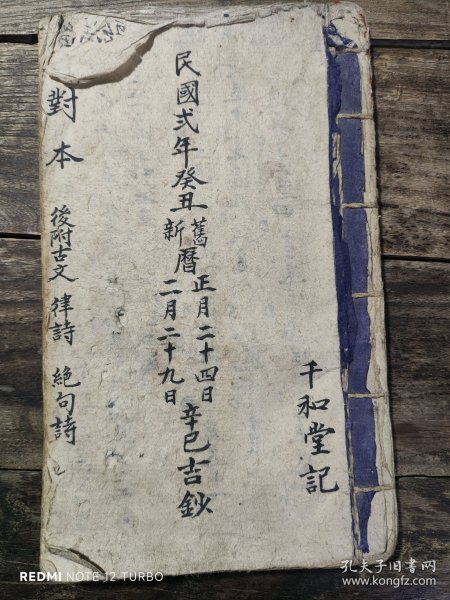 千和堂記
民國弍年癸丑舊曆正月二十四日辛巳吉鈔
新二月二十九日
對本 後附古文 律詩 絕句詩
REDMI NOTE 12 TURBO
孔夫子旧书网
www.kongfz.com